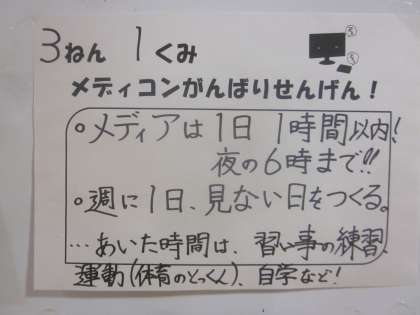 3ねん 1くみ
メディコンがんばりせんげん!
○メディアは1日1時間以内!
夜の6時まで!!
○週に1日、見ない日をつくる。
…あいた時間は、習い事の練習、
運動(体育のとっくん)、自学など!